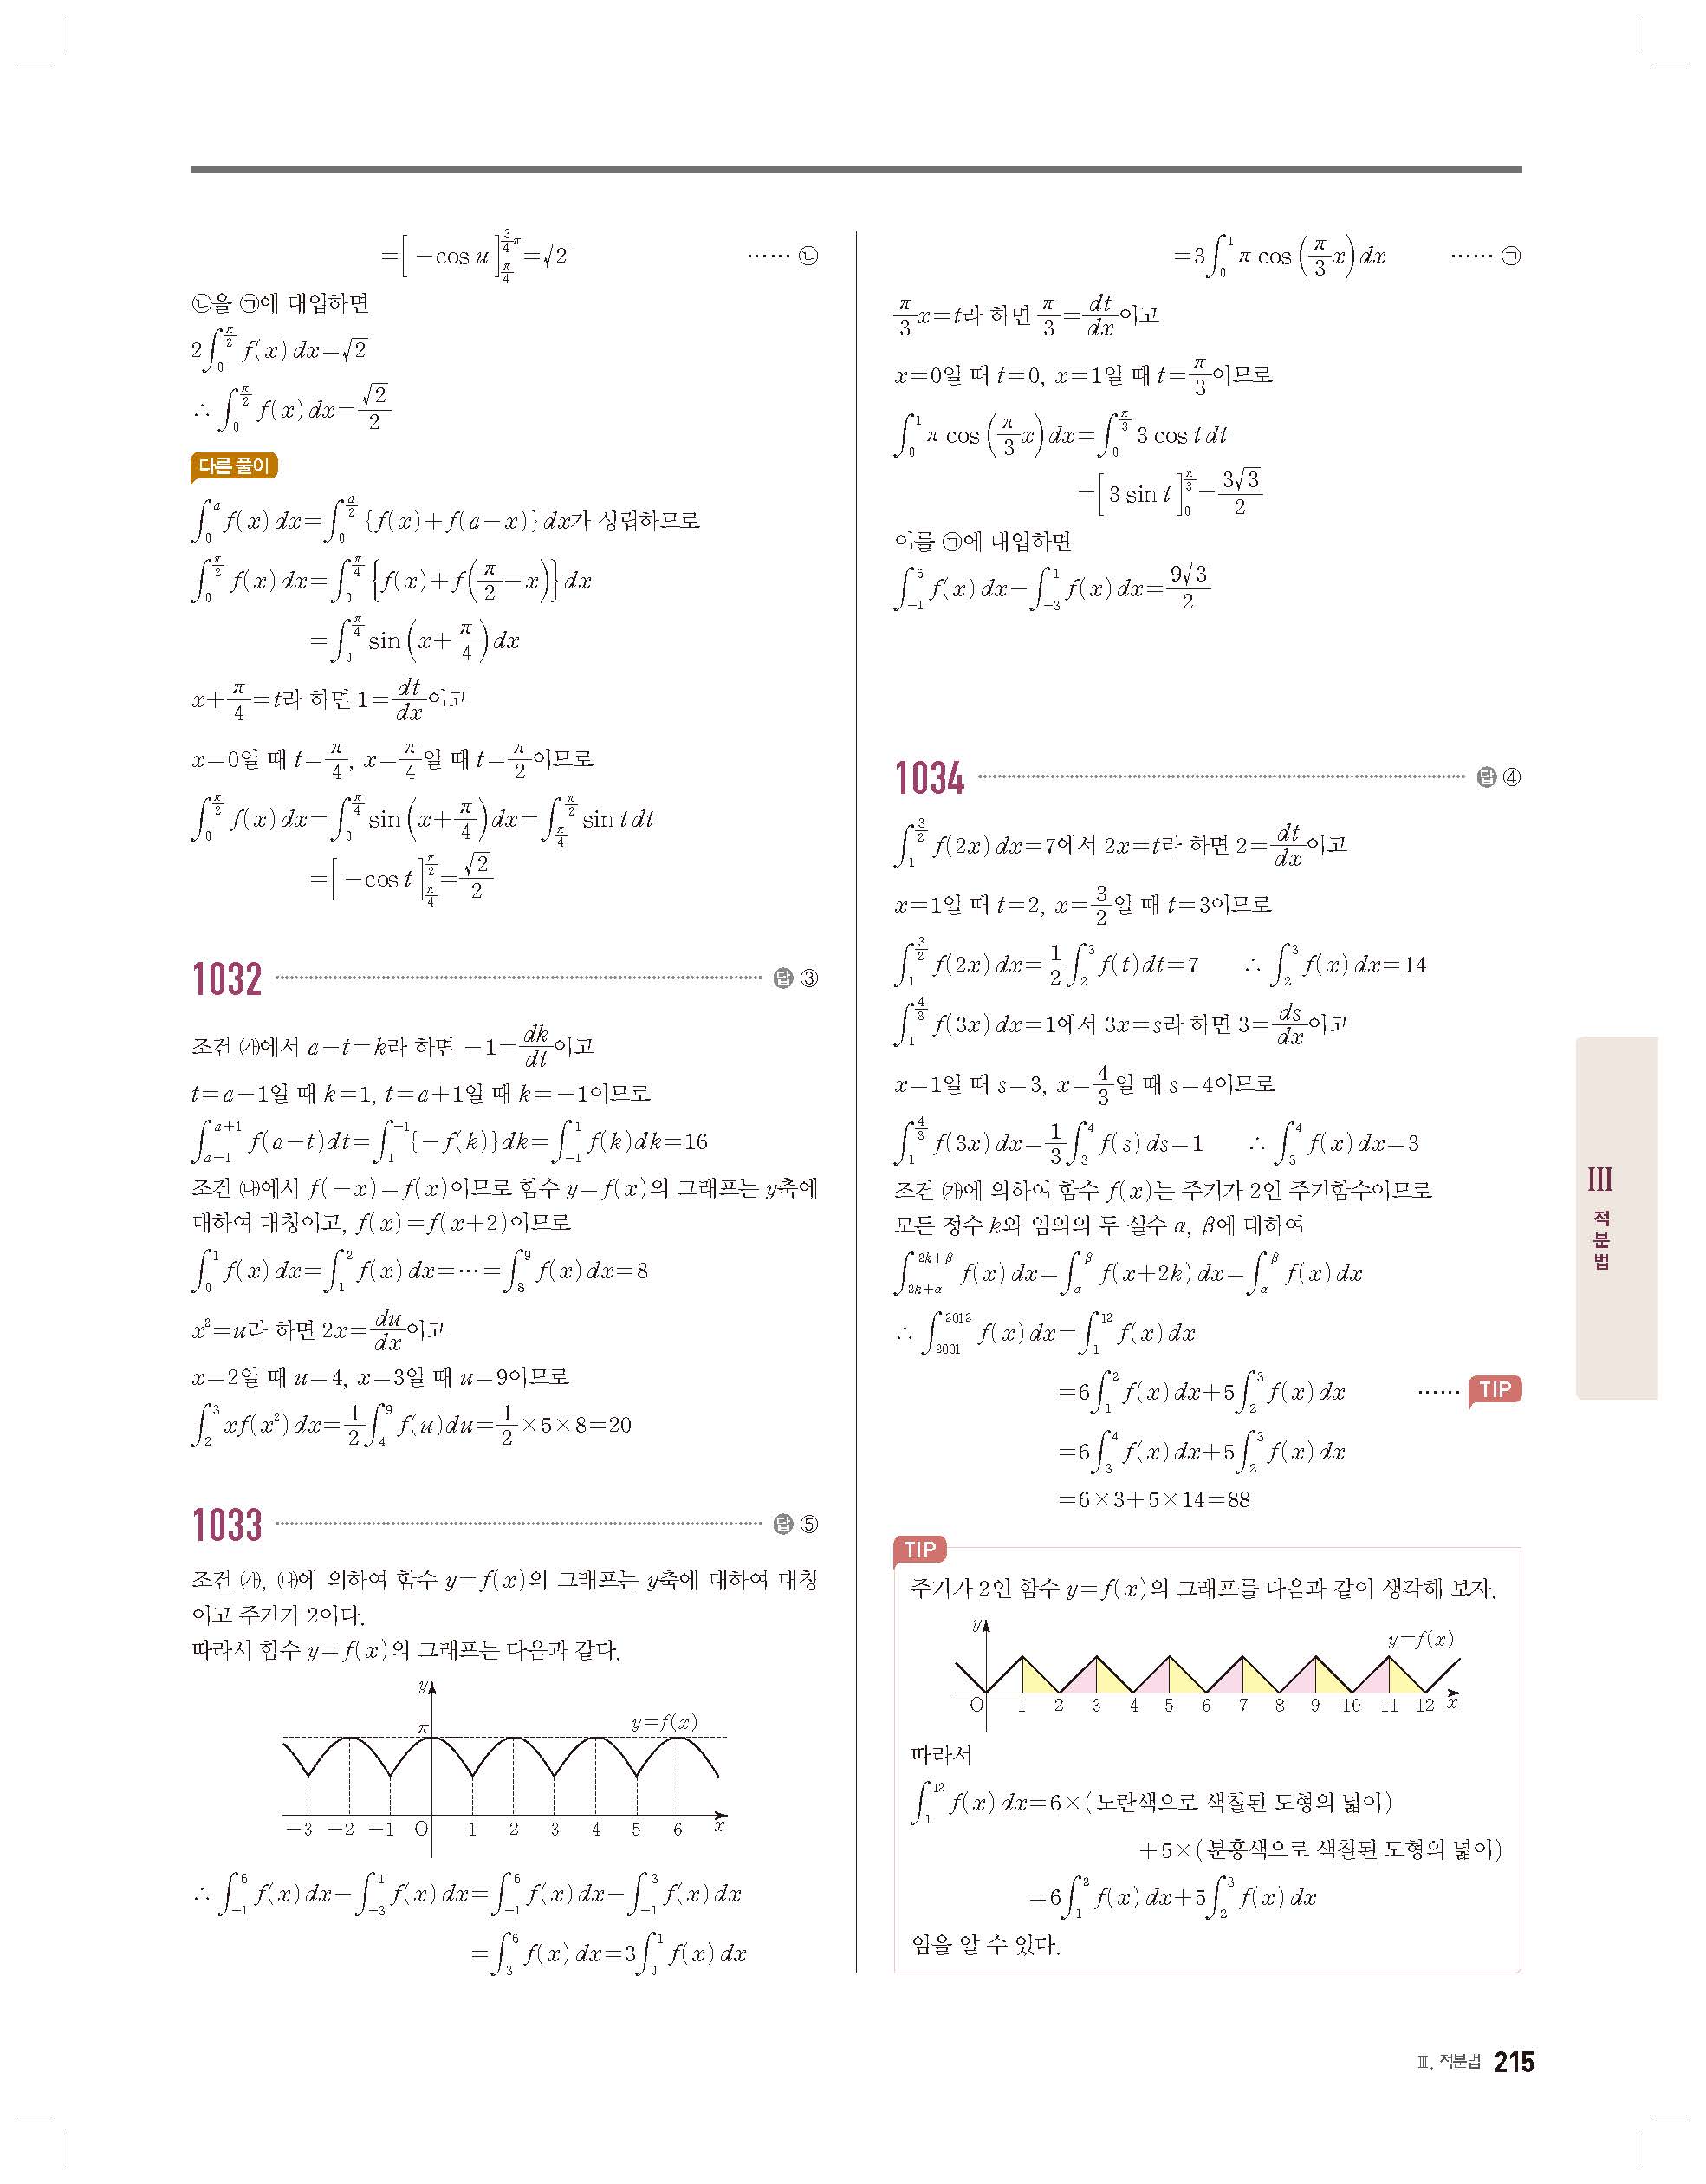 =[-cos u]_{π/4}^{3/4 π}=√2 …… ㉡
㉡을 ㉠에 대입하면
2∫_0^{π/2} f(x)dx=√2
∴ ∫_0^{π/2} f(x)dx=√2/2
다른 풀이
∫_0^a f(x)dx=∫_0^{a/2} {f(x)+f(a-x)}dx가 성립하므로
∫_0^{π/2} f(x)dx=∫_0^{π/4} {f(x)+f(π/2-x)}dx
=∫_0^{π/4} sin(x+π/4)dx
x+π/4=t라 하면 1=dt/dx이고
x=0일 때 t=π/4, x=π/4일 때 t=π/2이므로
∫_0^{π/2} f(x)dx=∫_0^{π/4} sin(x+π/4)dx=∫_{π/4}^{π/2} sin t dt
=[-cos t]_{π/4}^{π/2}=√2/2
1032 답 ③
조건 ㈎에서 a-t=k라 하면 -1=dk/dt이고
t=a-1일 때 k=1, t=a+1일 때 k=-1이므로
∫_{a-1}^{a+1} f(a-t)dt=∫_1^{-1} {-f(k)}dk=∫_{-1}^1 f(k)dk=16
조건 ㈏에서 f(-x)=f(x)이므로 함수 y=f(x)의 그래프는 y축에
대하여 대칭이고, f(x)=f(x+2)이므로
∫_0^1 f(x)dx=∫_1^2 f(x)dx=⋯=∫_8^9 f(x)dx=8
x²=u라 하면 2x=du/dx이고
x=2일 때 u=4, x=3일 때 u=9이므로
∫_2^3 xf(x²)dx=1/2∫_4^9 f(u)du=1/2×5×8=20
1033 답 ⑤
조건 ㈎, ㈏에 의하여 함수 y=f(x)의 그래프는 y축에 대하여 대칭
이고 주기가 2이다.
따라서 함수 y=f(x)의 그래프는 다음과 같다.
y
π y=f(x)
-3 -2 -1 O 1 2 3 4 5 6 x
∴ ∫_{-1}^6 f(x)dx-∫_{-3}^1 f(x)dx=∫_{-1}^6 f(x)dx-∫_{-1}^3 f(x)dx
=∫_3^6 f(x)dx=3∫_0^1 f(x)dx
=3∫_0^1 π cos(π/3 x)dx …… ㉠
π/3 x=t라 하면 π/3=dt/dx이고
x=0일 때 t=0, x=1일 때 t=π/3이므로
∫_0^1 π cos(π/3 x)dx=∫_0^{π/3} 3 cos t dt
=[3 sin t]_0^{π/3}=3√3/2
이를 ㉠에 대입하면
∫_{-1}^6 f(x)dx-∫_{-3}^1 f(x)dx=9√3/2
1034 답 ④
∫_1^{3/2} f(2x)dx=7에서 2x=t라 하면 2=dt/dx이고
x=1일 때 t=2, x=3/2일 때 t=3이므로
∫_1^{3/2} f(2x)dx=1/2∫_2^3 f(t)dt=7 ∴ ∫_2^3 f(x)dx=14
∫_1^{4/3} f(3x)dx=1에서 3x=s라 하면 3=ds/dx이고
x=1일 때 s=3, x=4/3일 때 s=4이므로
∫_1^{4/3} f(3x)dx=1/3∫_3^4 f(s)ds=1 ∴ ∫_3^4 f(x)dx=3
조건 ㈎에 의하여 함수 f(x)는 주기가 2인 주기함수이므로
모든 정수 k와 임의의 두 실수 α, β에 대하여
∫_{2k+α}^{2k+β} f(x)dx=∫_α^β f(x+2k)dx=∫_α^β f(x)dx
∴ ∫_{2001}^{2012} f(x)dx=∫_1^{12} f(x)dx
=6∫_1^2 f(x)dx+5∫_2^3 f(x)dx …… TIP
=6∫_3^4 f(x)dx+5∫_2^3 f(x)dx
=6×3+5×14=88
TIP
주기가 2인 함수 y=f(x)의 그래프를 다음과 같이 생각해 보자.
y
y=f(x)
O 1 2 3 4 5 6 7 8 9 10 11 12 x
따라서
∫_1^{12} f(x)dx=6×(노란색으로 색칠된 도형의 넓이)
+5×(분홍색으로 색칠된 도형의 넓이)
=6∫_1^2 f(x)dx+5∫_2^3 f(x)dx
임을 알 수 있다.
Ⅲ 적분법
Ⅲ. 적분법 215